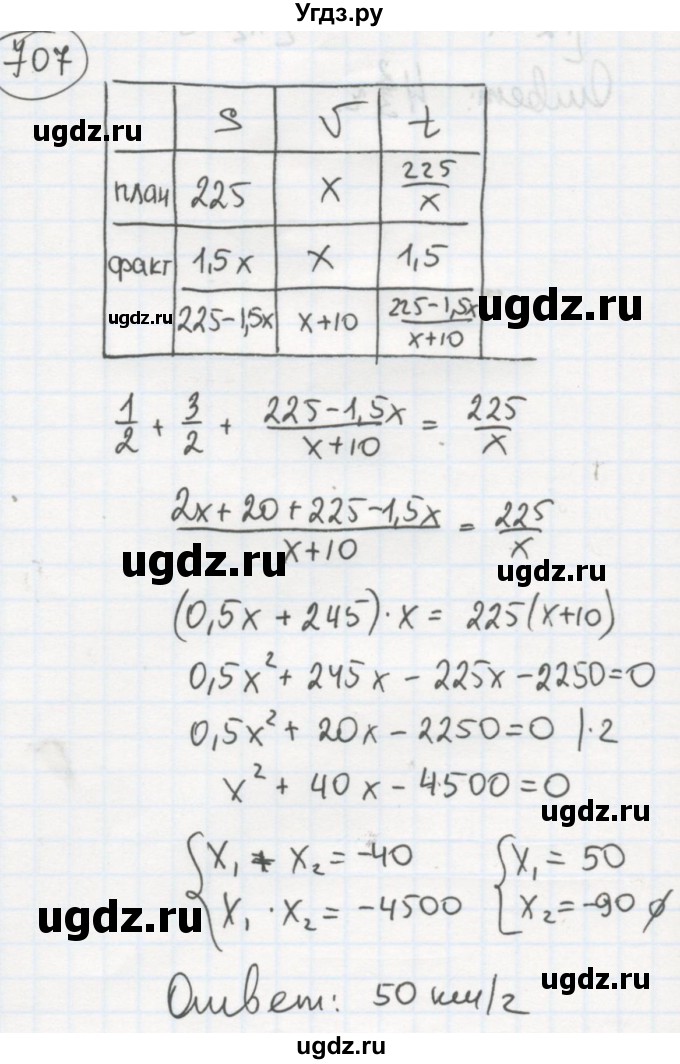 Угдз.ру
707
ugdz.ru
S V t
план 225 x 225/x
факт 1,5x x 1,5
ugdz.ru 225-1,5x x+10 (225-1,5x)/(x+10)
ugdz.ru
1/2 + 3/2 + (225-1,5x)/(x+10) = 225/x
(2x+20+225-1,5x)/(x+10) = 225/x
ugdz.ru
ugdz.ru
(0,5x+245)·x = 225(x+10)
0,5x²+245x-225x-2250=0
0,5x²+20x-2250=0 |·2
x²+40x-4500=0
ugdz.ru
{x₁+x₂=-40 [x₁=50
{x₁·x₂=-4500 [x₂=-90 ∅
ugdz.ru
ugdz.ru
Ответ: 50 км/ч
ugdz.ru